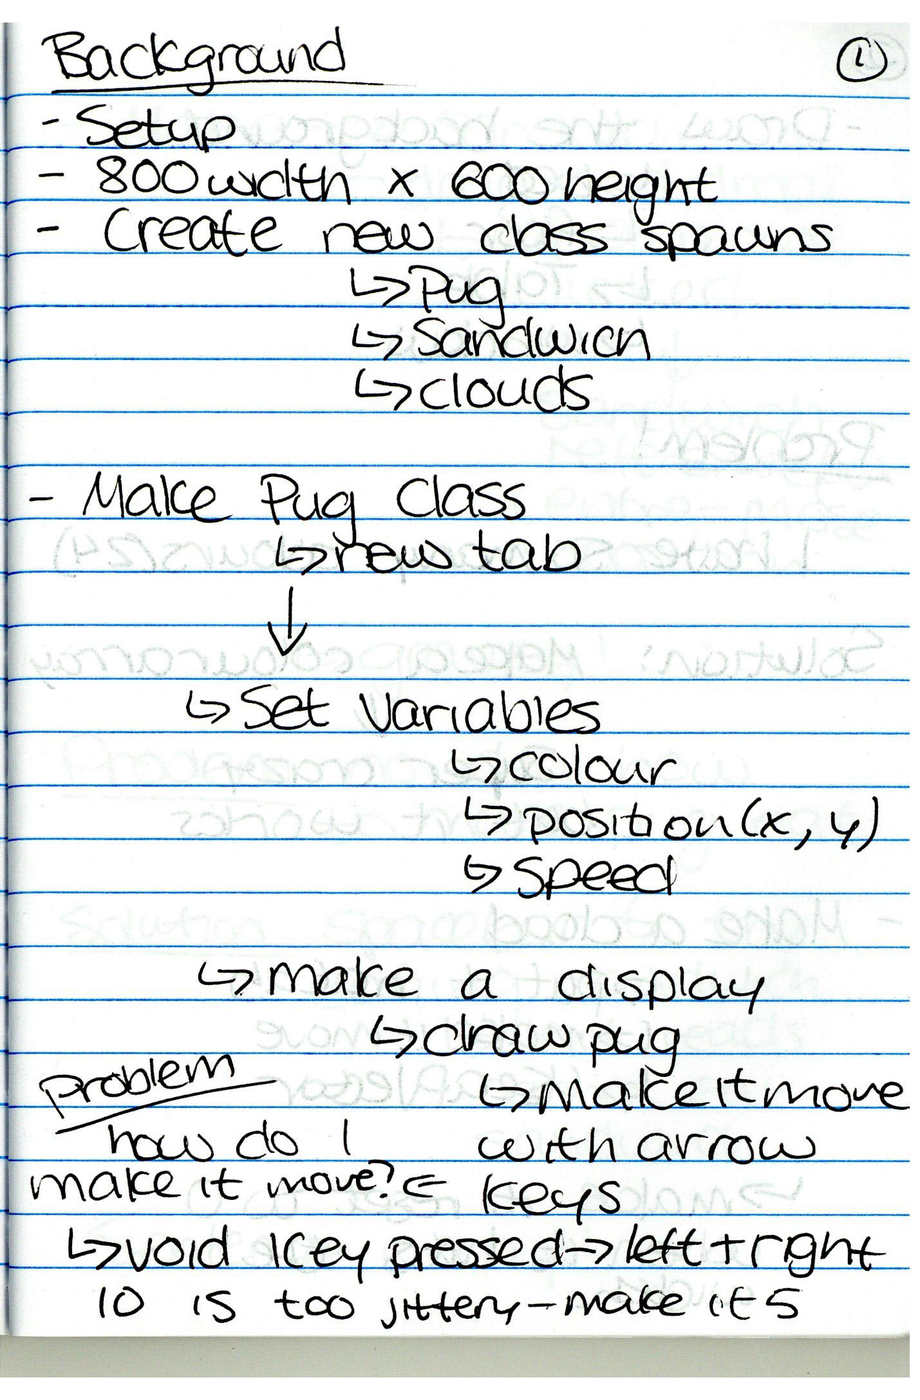 Background
①
- Setup
- 800 width x 600 height
- Create new class spawns
↳ Pug
↳ Sandwich
↳ clouds
- Make Pug Class
↳ new tab
↓
↳ Set variables
↳ colour
↳ position (x, y)
↳ Speed
↳ make a display
↳ draw pug
Problem
↳ make it move
how do I
with arrow
make it move? ⇐
keys
↳ void key pressed → left + right
10 is too jittery - make it 5